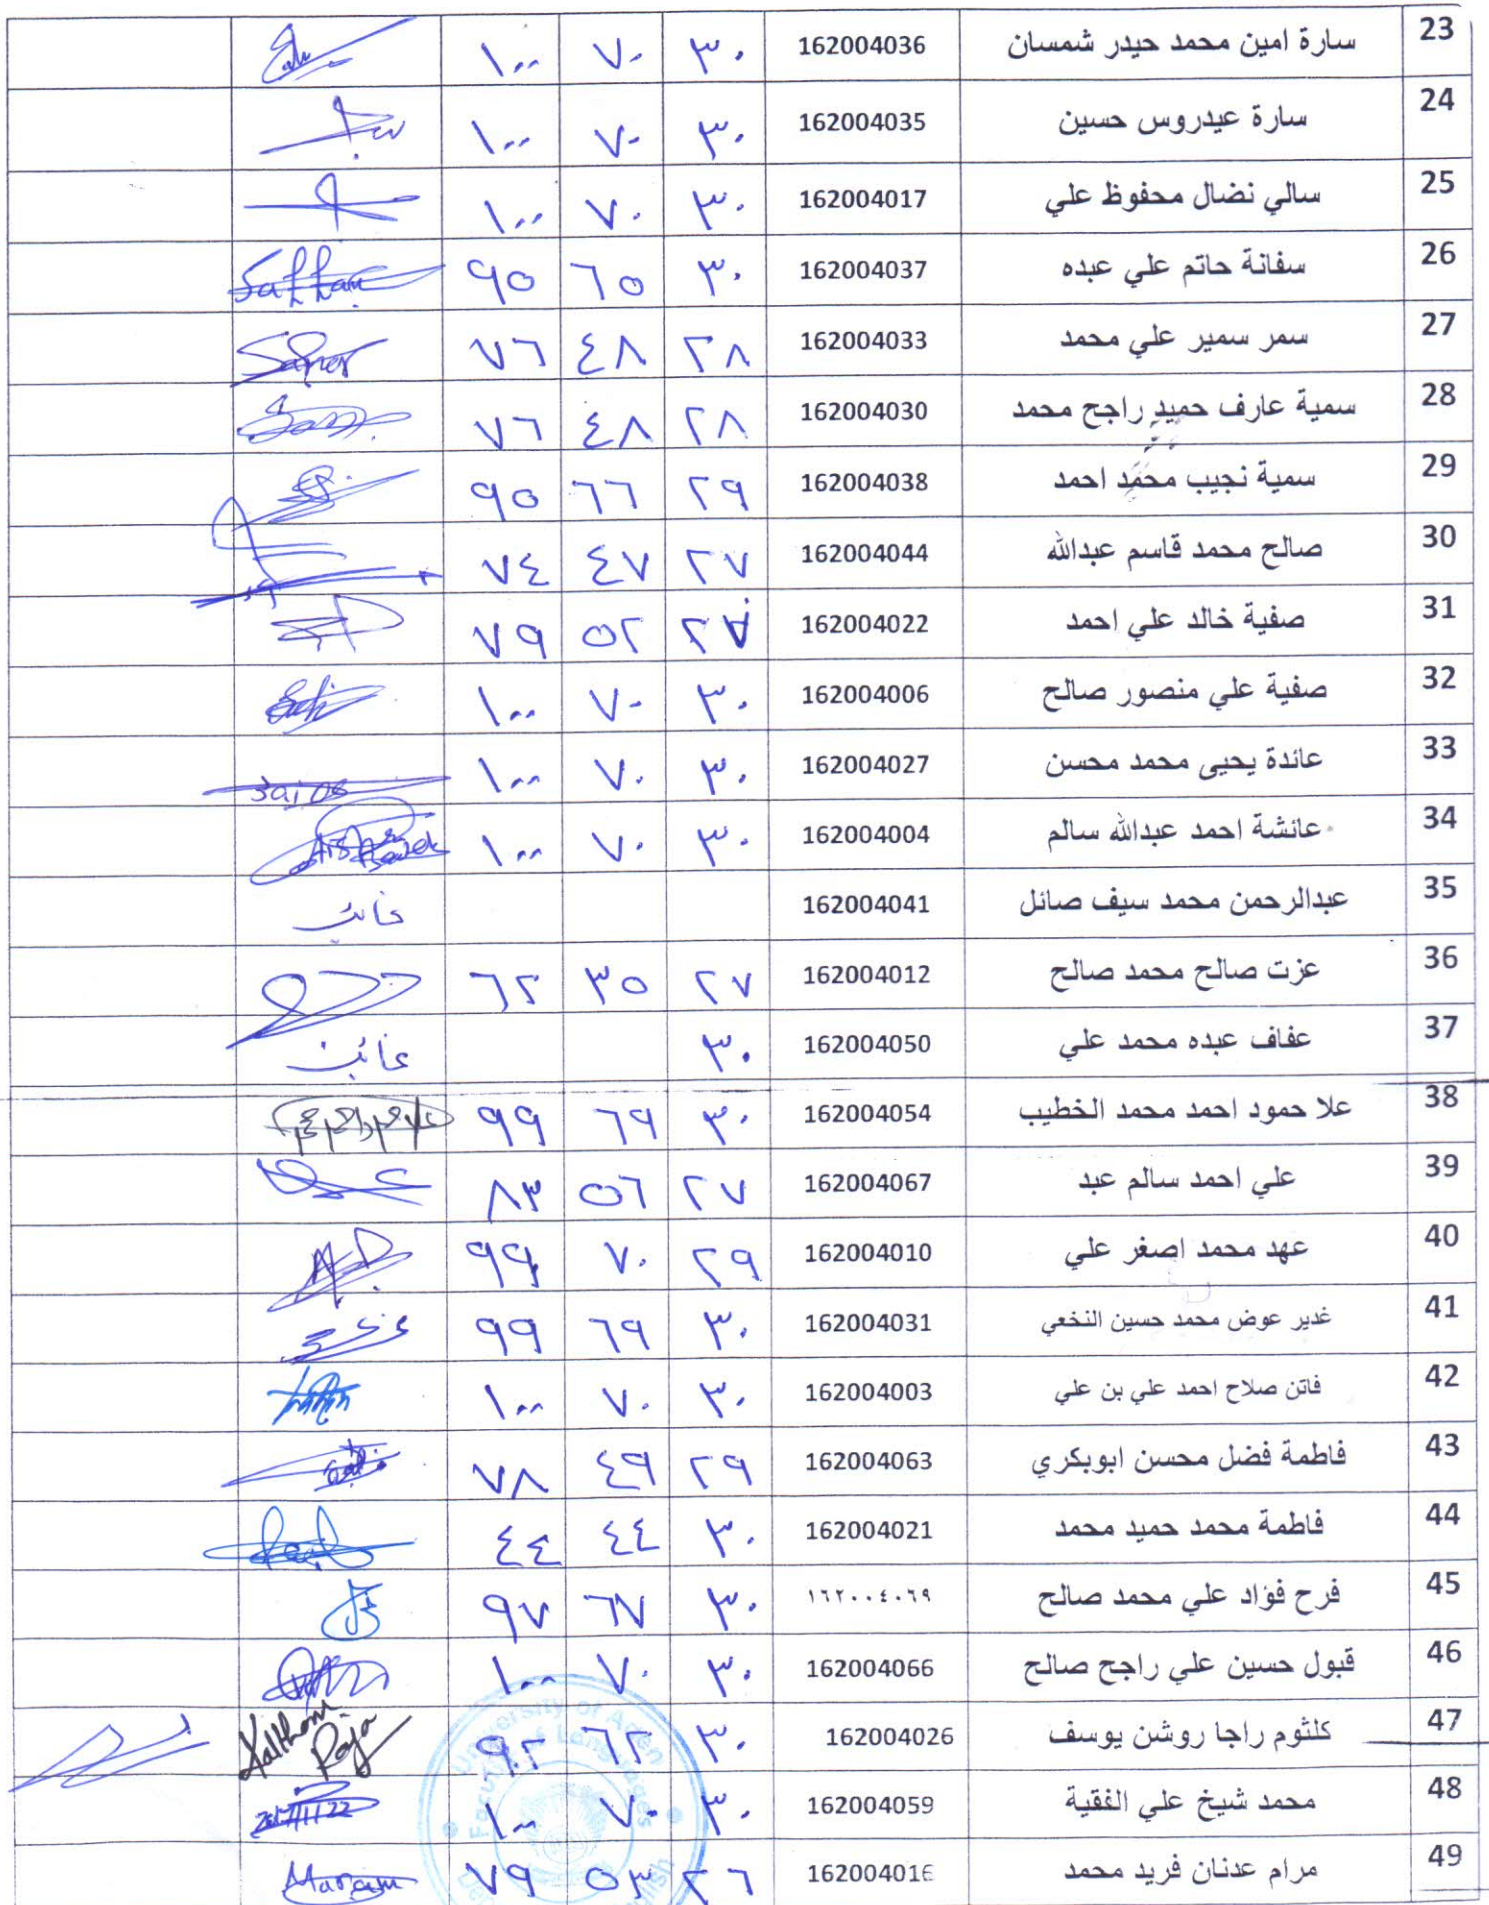 23 سارة امين محمد حيدر شمسان 162004036 ٣٠ ٧٠ ١٠٠
24 سارة عيدروس حسين 162004035 ٣٠ ٧٠ ١٠٠
25 سالي نضال محفوظ علي 162004017 ٣٠ ٧٠ ١٠٠
26 سفانة حاتم علي عبده 162004037 ٣٠ ٦٥ ٩٥
27 سمر سمير علي محمد 162004033 ٢٨ ٤٨ ٧٦
28 سمية عارف حميد راجح محمد 162004030 ٢٨ ٤٨ ٧٦
29 سمية نجيب محمد احمد 162004038 ٢٩ ٦٦ ٩٥
30 صالح محمد قاسم عبدالله 162004044 ٢٧ ٤٧ ٧٤
31 صفية خالد علي احمد 162004022 ٢٧ ٥٢ ٧٩
32 صفية علي منصور صالح 162004006 ٣٠ ٧٠ ١٠٠
33 عائدة يحيى محمد محسن 162004027 ٣٠ ٧٠ ١٠٠
34 عائشة احمد عبدالله سالم 162004004 ٣٠ ٧٠ ١٠٠
35 عبدالرحمن محمد سيف صائل 162004041 غائب
36 عزت صالح محمد صالح 162004012 ٢٧ ٣٥ ٦٢
37 عفاف عبده محمد علي 162004050 ٣٠ غائب
38 علا حمود احمد محمد الخطيب 162004054 ٣٠ ٦٩ ٩٩
39 علي احمد سالم عبد 162004067 ٢٧ ٥٦ ٨٣
40 عهد محمد اصغر علي 162004010 ٢٩ ٧٠ ٩٩
41 غدير عوض محمد حسين النخعي 162004031 ٣٠ ٦٩ ٩٩
42 فاتن صلاح احمد علي بن علي 162004003 ٣٠ ٧٠ ١٠٠
43 فاطمة فضل محسن ابوبكري 162004063 ٢٩ ٤٩ ٧٨
44 فاطمة محمد حميد محمد 162004021 ٣٠ ٤٤ ٤٤
45 فرح فؤاد علي محمد صالح ١٦٢٠٠٤٠٦٩ ٣٠ ٦٧ ٩٧
46 قبول حسين علي راجح صالح 162004066 ٣٠ ٧٠ ١٠٠
47 كلثوم راجا روشن يوسف 162004026 ٣٠ ٦٢ ٩٢ Kalthom Raja
48 محمد شيخ علي الفقية 162004059 ٣٠ ٧٠ ١٠٠
49 مرام عدنان فريد محمد 162004016 ٢٦ ٥٣ ٧٩ Maram
University of Aden
Faculty of Languages